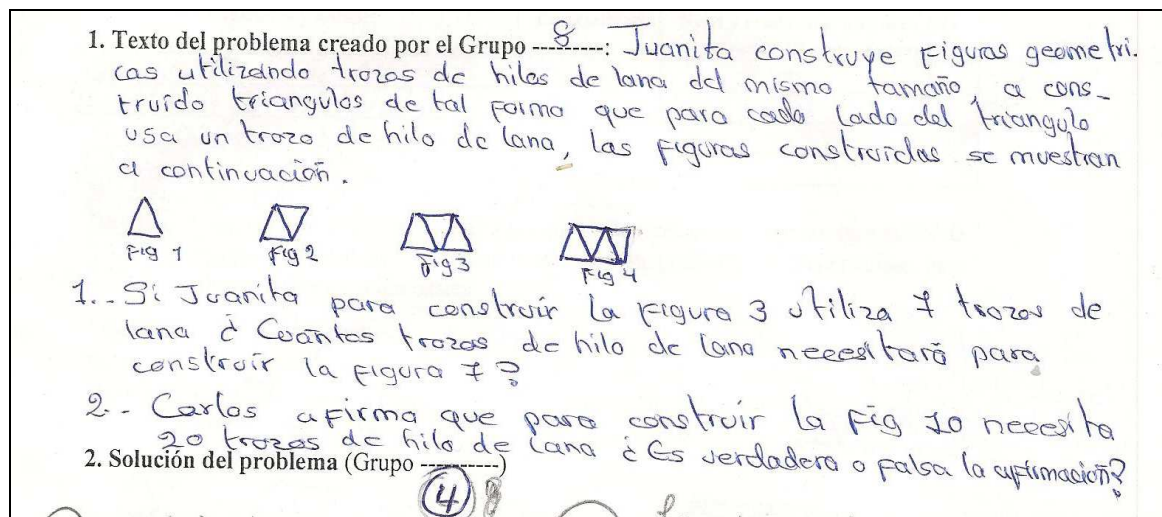 1. Texto del problema creado por el Grupo ---8---: Juanita construye Figuras geometri.
cas utilizando trozos de hilos de lana del mismo tamaño, a cons-
truído triangulos de tal forma que para cada lado del triangulo
usa un trozo de hilo de lana, las figuras construidas se muestran
a continuación.
Fig 1 Fig 2 Fig 3 Fig 4
1.- Si Juanita para construir la Figura 3 utiliza 7 trozos de
lana ¿ Cuantos trozos de hilo de lana necesitará para
construir la figura 7?
2.- Carlos afirma que para construir la Fig 10 necesita
20 trozos de hilo de lana ¿ Es verdadera o falsa la afirmación?
2. Solución del problema (Grupo ----------)
4 8